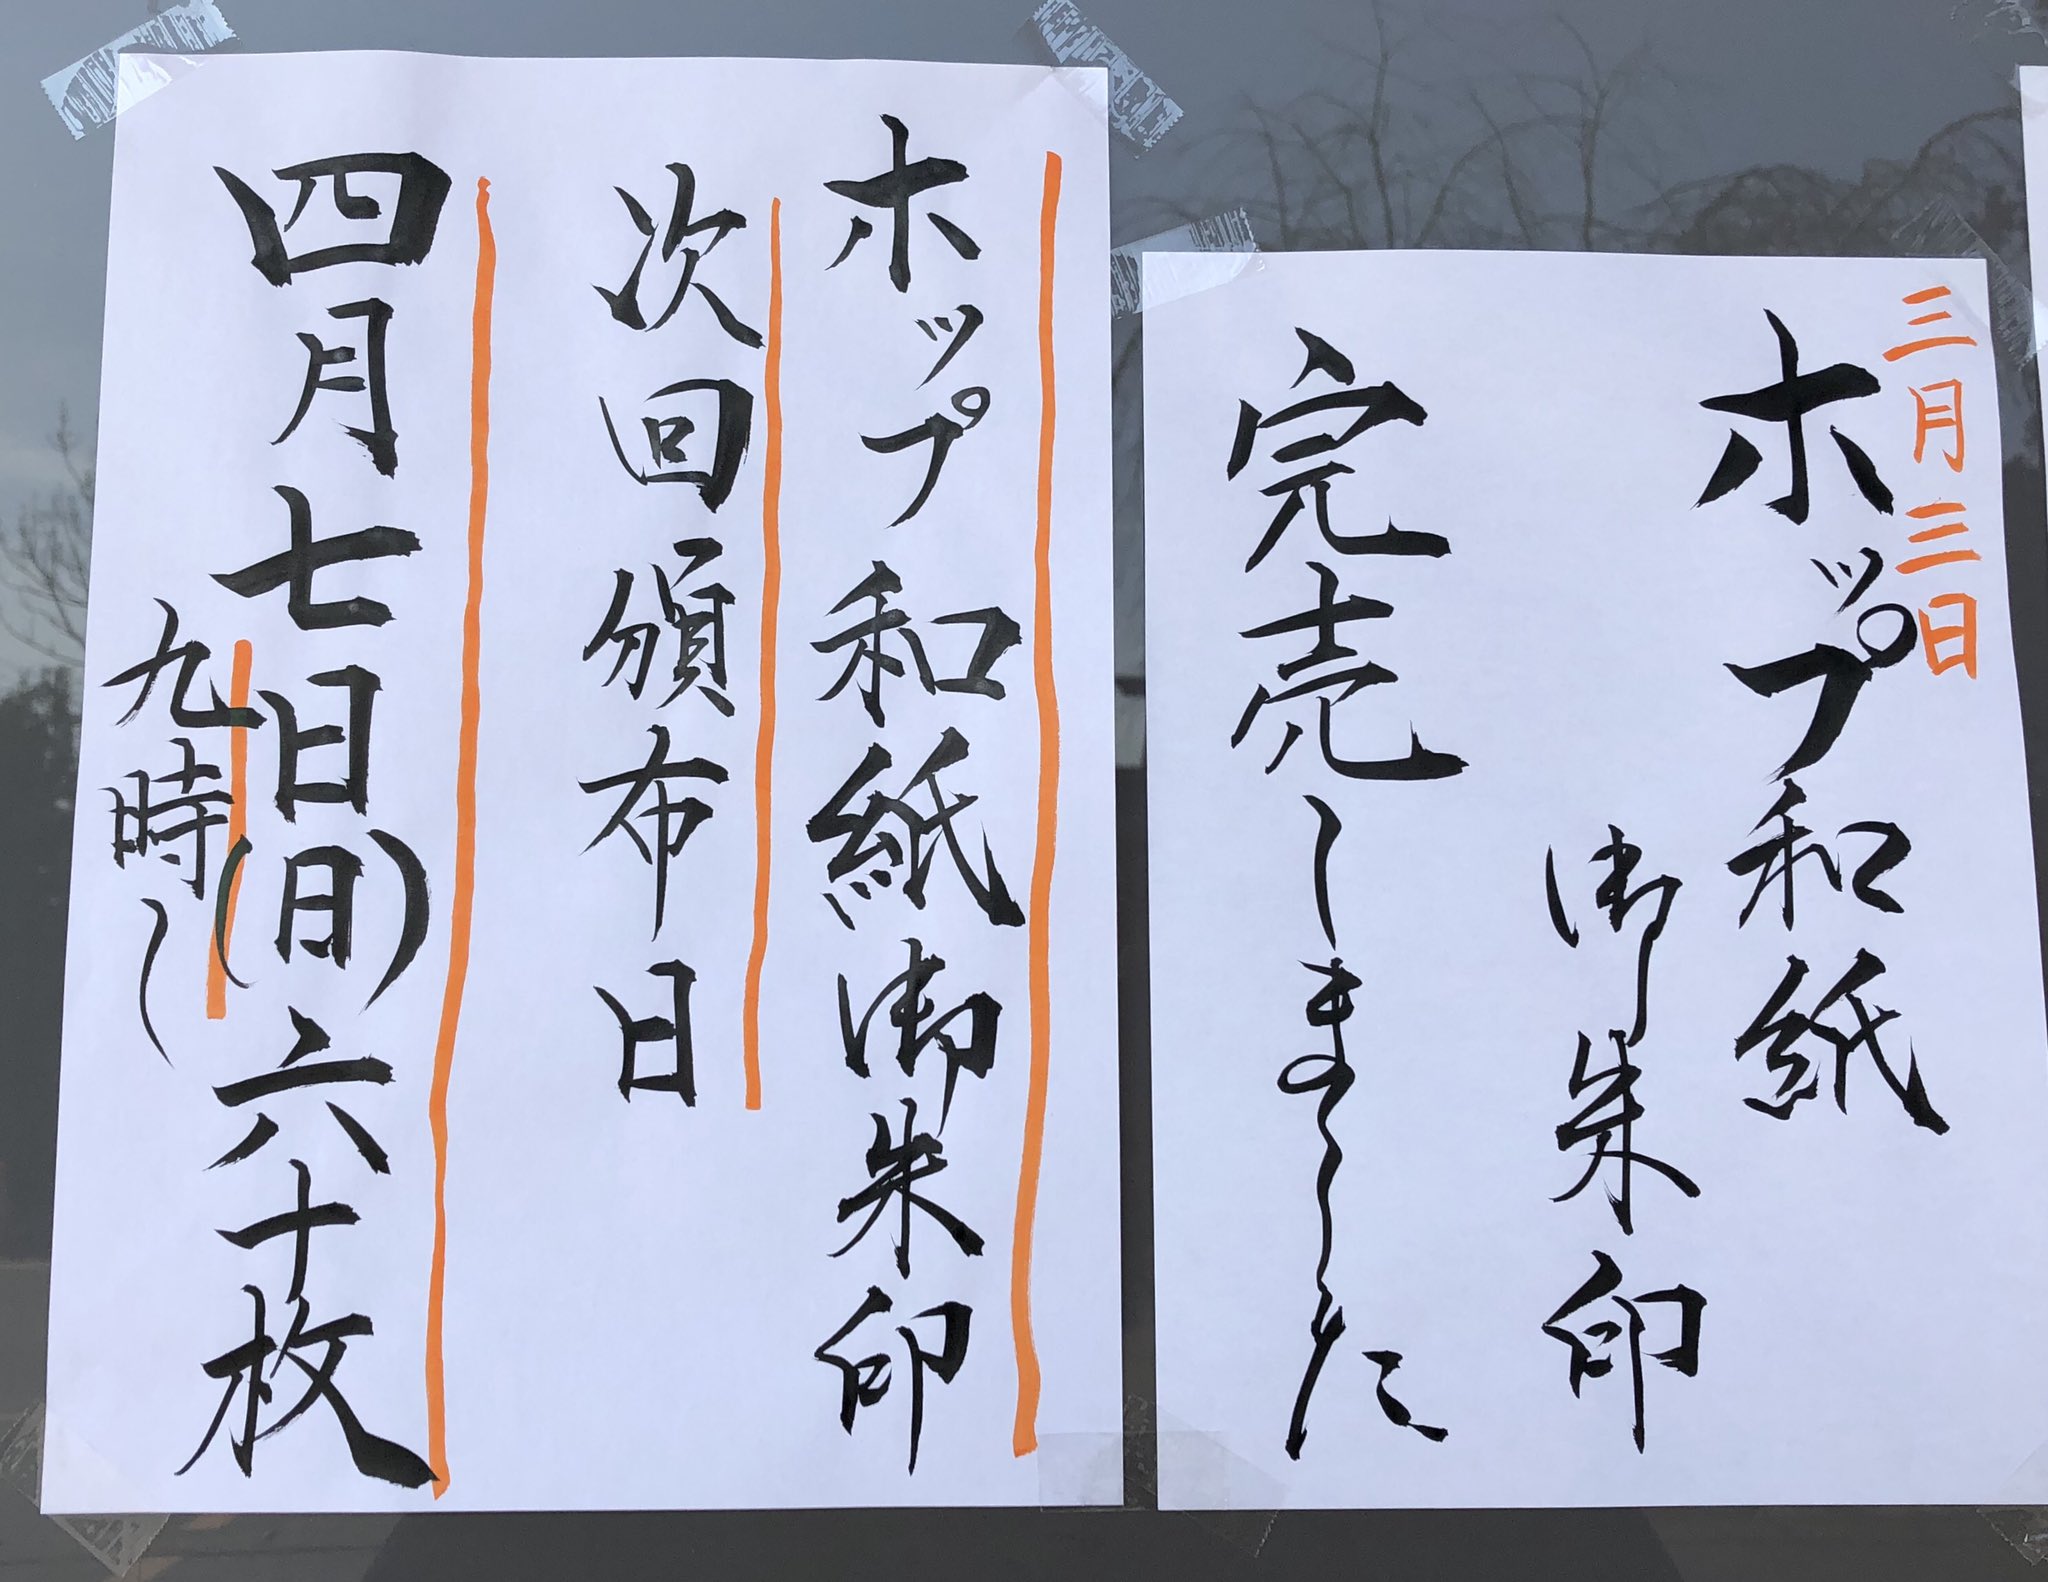 三月三日
ホップ和紙
御朱印
完売しました
ホップ和紙御朱印
次回頒布日
四月七日(日)六十枚
九時〜